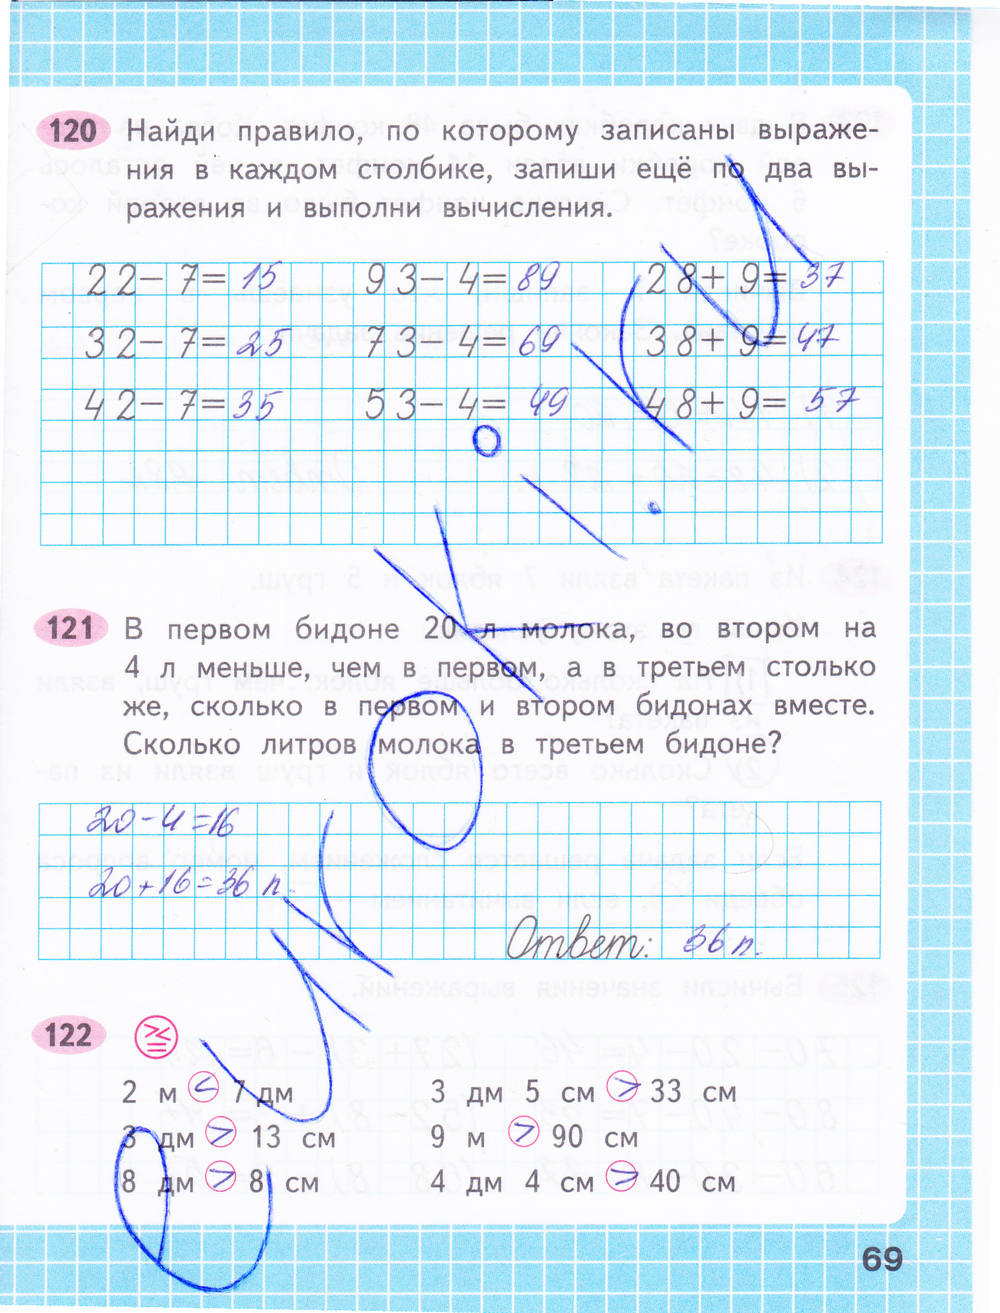 120 Найди правило, по которому записаны выраже-
ния в каждом столбике, запиши ещё по два вы-
ражения и выполни вычисления.
22 – 7 = 15 93 – 4 = 89 28 + 9 = 37
32 – 7 = 25 73 – 4 = 69 38 + 9 = 47
42 – 7 = 35 53 – 4 = 49 48 + 9 = 57
121 В первом бидоне 20 л молока, во втором на
4 л меньше, чем в первом, а в третьем столько
же, сколько в первом и втором бидонах вместе.
Сколько литров молока в третьем бидоне?
20 - 4 = 16
20 + 16 = 36 л.
Ответ: 36 л.
122 > < =
2 м < 7 дм 3 дм 5 см > 33 см
3 дм > 13 см 9 м > 90 см
8 дм > 8 см 4 дм 4 см > 40 см
69